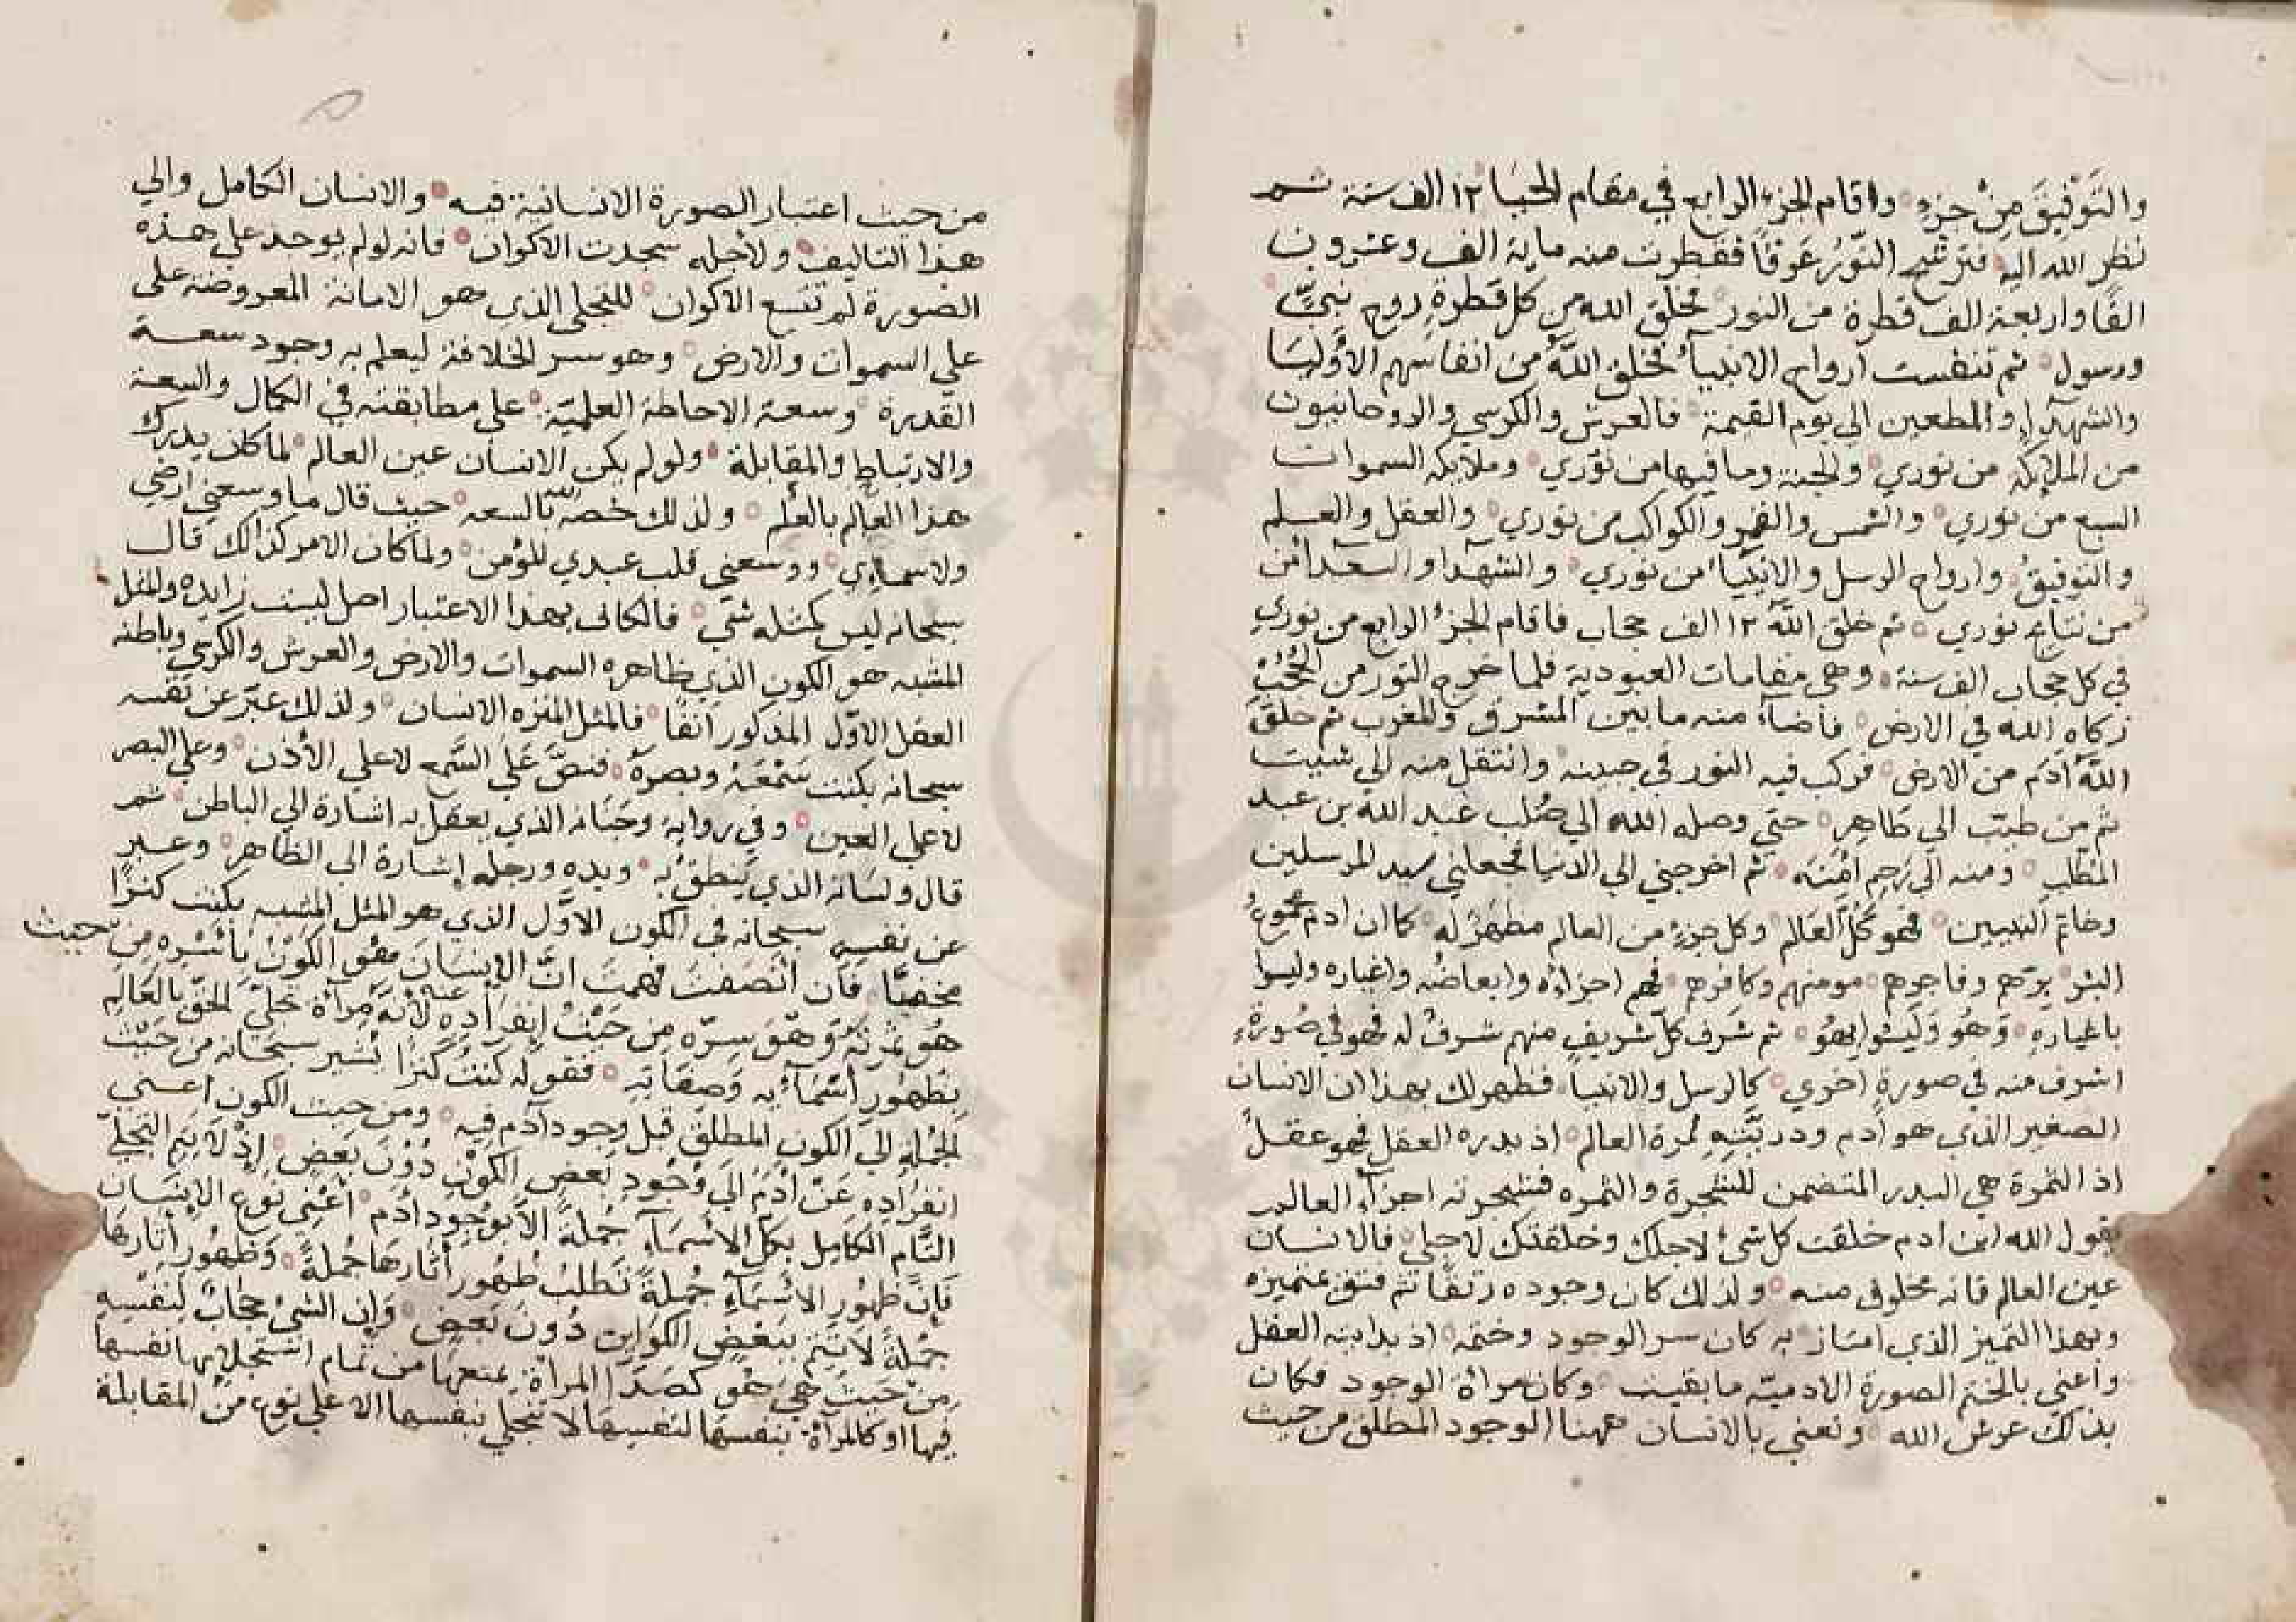 والتَوْفيقَ مِنْ جزءٍ واقام الجزء الرابع في مقام الحَيَا ١٢ الف سنة ثم
نظر الله اليه فترشح النّوُرُ عَرَقًا فقطرت منه ماية الف وعشرون
الفًا واربعة الف قطرة من النور فخلق الله من كل قطرةٍ روح نبيٍّ
ورسول ثم تنفست ارواح الانبيآ فخلق اللّهُ من انفاسهم الأوليَا
والشهدآء والمطعين الي يوم القيمة فالعرش والكرسي والروحانيون
من الملايكة من نوري والجنة وما فيها من نوري وملايكه السموات
السبع من نوري والشمس والقمر والكواكب من نوري والعقل والعلم
والتوفيقُ وارواح الرسل والانبيَاء من نوري والشهدآ والسعدآ من
من نتايج نوري ثم خلق اللّهُ ١٢ الف حجاب فاقام الجزءُ الرابع من نوري
في كل حجاب الف سنة وهي مقامات العبودية فلما خرج النور من الحُجُبِ
زكاه الله في الارض فاضآء منه ما بين المشرق والمغرب ثم خلق
اللّهُ آدَم من الارض فركب فيه النور في جبينه وانتقل منه الي شيت
ثم من طيّب الي طاهر حتي وصله الله الي صُلب عبد الله بن عبد
المطّلب ومنه الي رَحِمِ امِنَه ثم اخرجني الي الدنيا فجعلني سيد المرسلين
وخاتم النبيين فهو كُلّ العَالم وكل جزءٍ من العالم مظهَرٌ له كما ان ادم مجموعُ
البشر برّهم وفاجرهم مومنهم وكافرهم فهم اجزاؤه وابعاضُه واغياره وليسوا
باغيارهِ وَهُو وَلَيسُوا بِهُو ثم شرَف كلّ شريفٍ منهم شرفٌ له فهو في صُورةٍ
اشرف منه في صورة اخري كالرسل والانبيا فظهر لك بهذا ان الانسان
الصغير الذي هو آدم وذريّتِهِ ثمرة العالم اذ بدره العقل فهو عقلٌ
اذ الثمرة هي البدر المتضمن للشجرة والثمره فشجرته اجزآء العالم
يقول الله ابن ادم خلقت كل شئ لاجلك وخلقتك لاجلي فالانسان
عين العالم فانه مخلوق منه ولذلك كان وجوده رتقًا ثم فتق بتميزه
وبهذا التميز الذي امتاز به كان سر الوجود وختمه اذ بدايته العقل
واعني بالختم الصورة الادميّه ما بقيت وكان مرآة الوجود فكان
بذلك عرش الله ونعني بالانسان ههنا الوجود المطلق من حيث
من حيث اعتبار الصورة الانسانية فيه والانسان الكامل والي
هذا التاليف ولاجله سجدت الاكوان فانه لو لم يوجد علي هذه
الصورة لم تتسع الاكوان للتجلي الذي هو الامانة المعروضة علي
علي السموات والارض وهو سر الخلافة ليعلم به وجود سعة
القدرة وسعة الاحاطة العلميّة علي مطابقته في الكمال والسعة
والارتباط والمقابلة ولو لم يكن الانسان عين العالم لما كان يدرك
هذا العالم بالعلم ولذلك خصّه الله بالسعه حيث قال ما وسعني ارضي
ولا سمآءي ووسعني قلب عبدي المؤمن ولما كان الامر كذالك قال
سبحانه ليس كمثله شي فالكاف بهذا الاعتبار اصل ليست زايده والمثل
المشبه هو الكون الذي ظاهره السموات والارض والعرش والكرسي وباطنه
العقل الاوّل المذكور انفًا فالمثل المنزه الانسان ولذلك عبّر عن نفسه
سبحانه بكنت سَمْعَهُ وبصرهُ فنصّ عَلَي السَّمع لا علي الأذن وعلي البصر
لا علي العين وفي رواية وجَنَانه الذي يعقل به اشارة الي الباطن ثم
قال ولسانه الذي يَنطق به ويده ورجله إشارة الي الظاهر وعبر
عن نفسه سبحانه في الكون الاوّل الذي هو المثل المشبه بكنت كنزًا
مخفيًّا فان انصَفتَ فهمتَ انّ الإنسَانَ هُوَ الكَوْنُ بِأَسْرِه مِن حيث
هُو ثمرتُه وَهُوَ سِرّه مِن حَيْثُ إنفرَادِه عنه لأنّه مِرآةُ تجلّي الحَقِّ بالعَالَمِ
بِظهُورِ أسمآءِه وَصِفاتِه فقوله كنتُ كنزًا يُشير سبحانه من حَيْثُ
الجُملة الي الكون المطلق قبل وجود آدم فيه ومن حيث الكون اعني
انفرَادِه عَنْ ادَمَ الَي وُجُودِ بعض الكَوْنِ دُوْنَ بَعَضٍ إذْ لَا يَتم التجلّي
التّام الكامِل بكلّ الاسْمَآءِ جُملةً الّا بوُجُودِ ادَمَ أعْنِي نوْعَ الإنسَان
فَإنّ ظهُور الاسْمَآءِ جُملةً تَطلبُ ظهُورَ أثارهَا جُملةً وَظهُور أثارهَا
جُملةً لَا يَتم ببَعْضِ الكَوَاينِ دُونَ بَعضٍ وَإن الشئ حجابٌ لنفْسِهِ
مِنْ حَيثُ هيَ هُو كصَدَإ المِرآة يمنعها من تمام استجلائها نفسها
فيها او كالمرآة بنفسهَا لنفسِهَا لا تتجلي بنفسها الا علي نوع مِنَ المقابلة